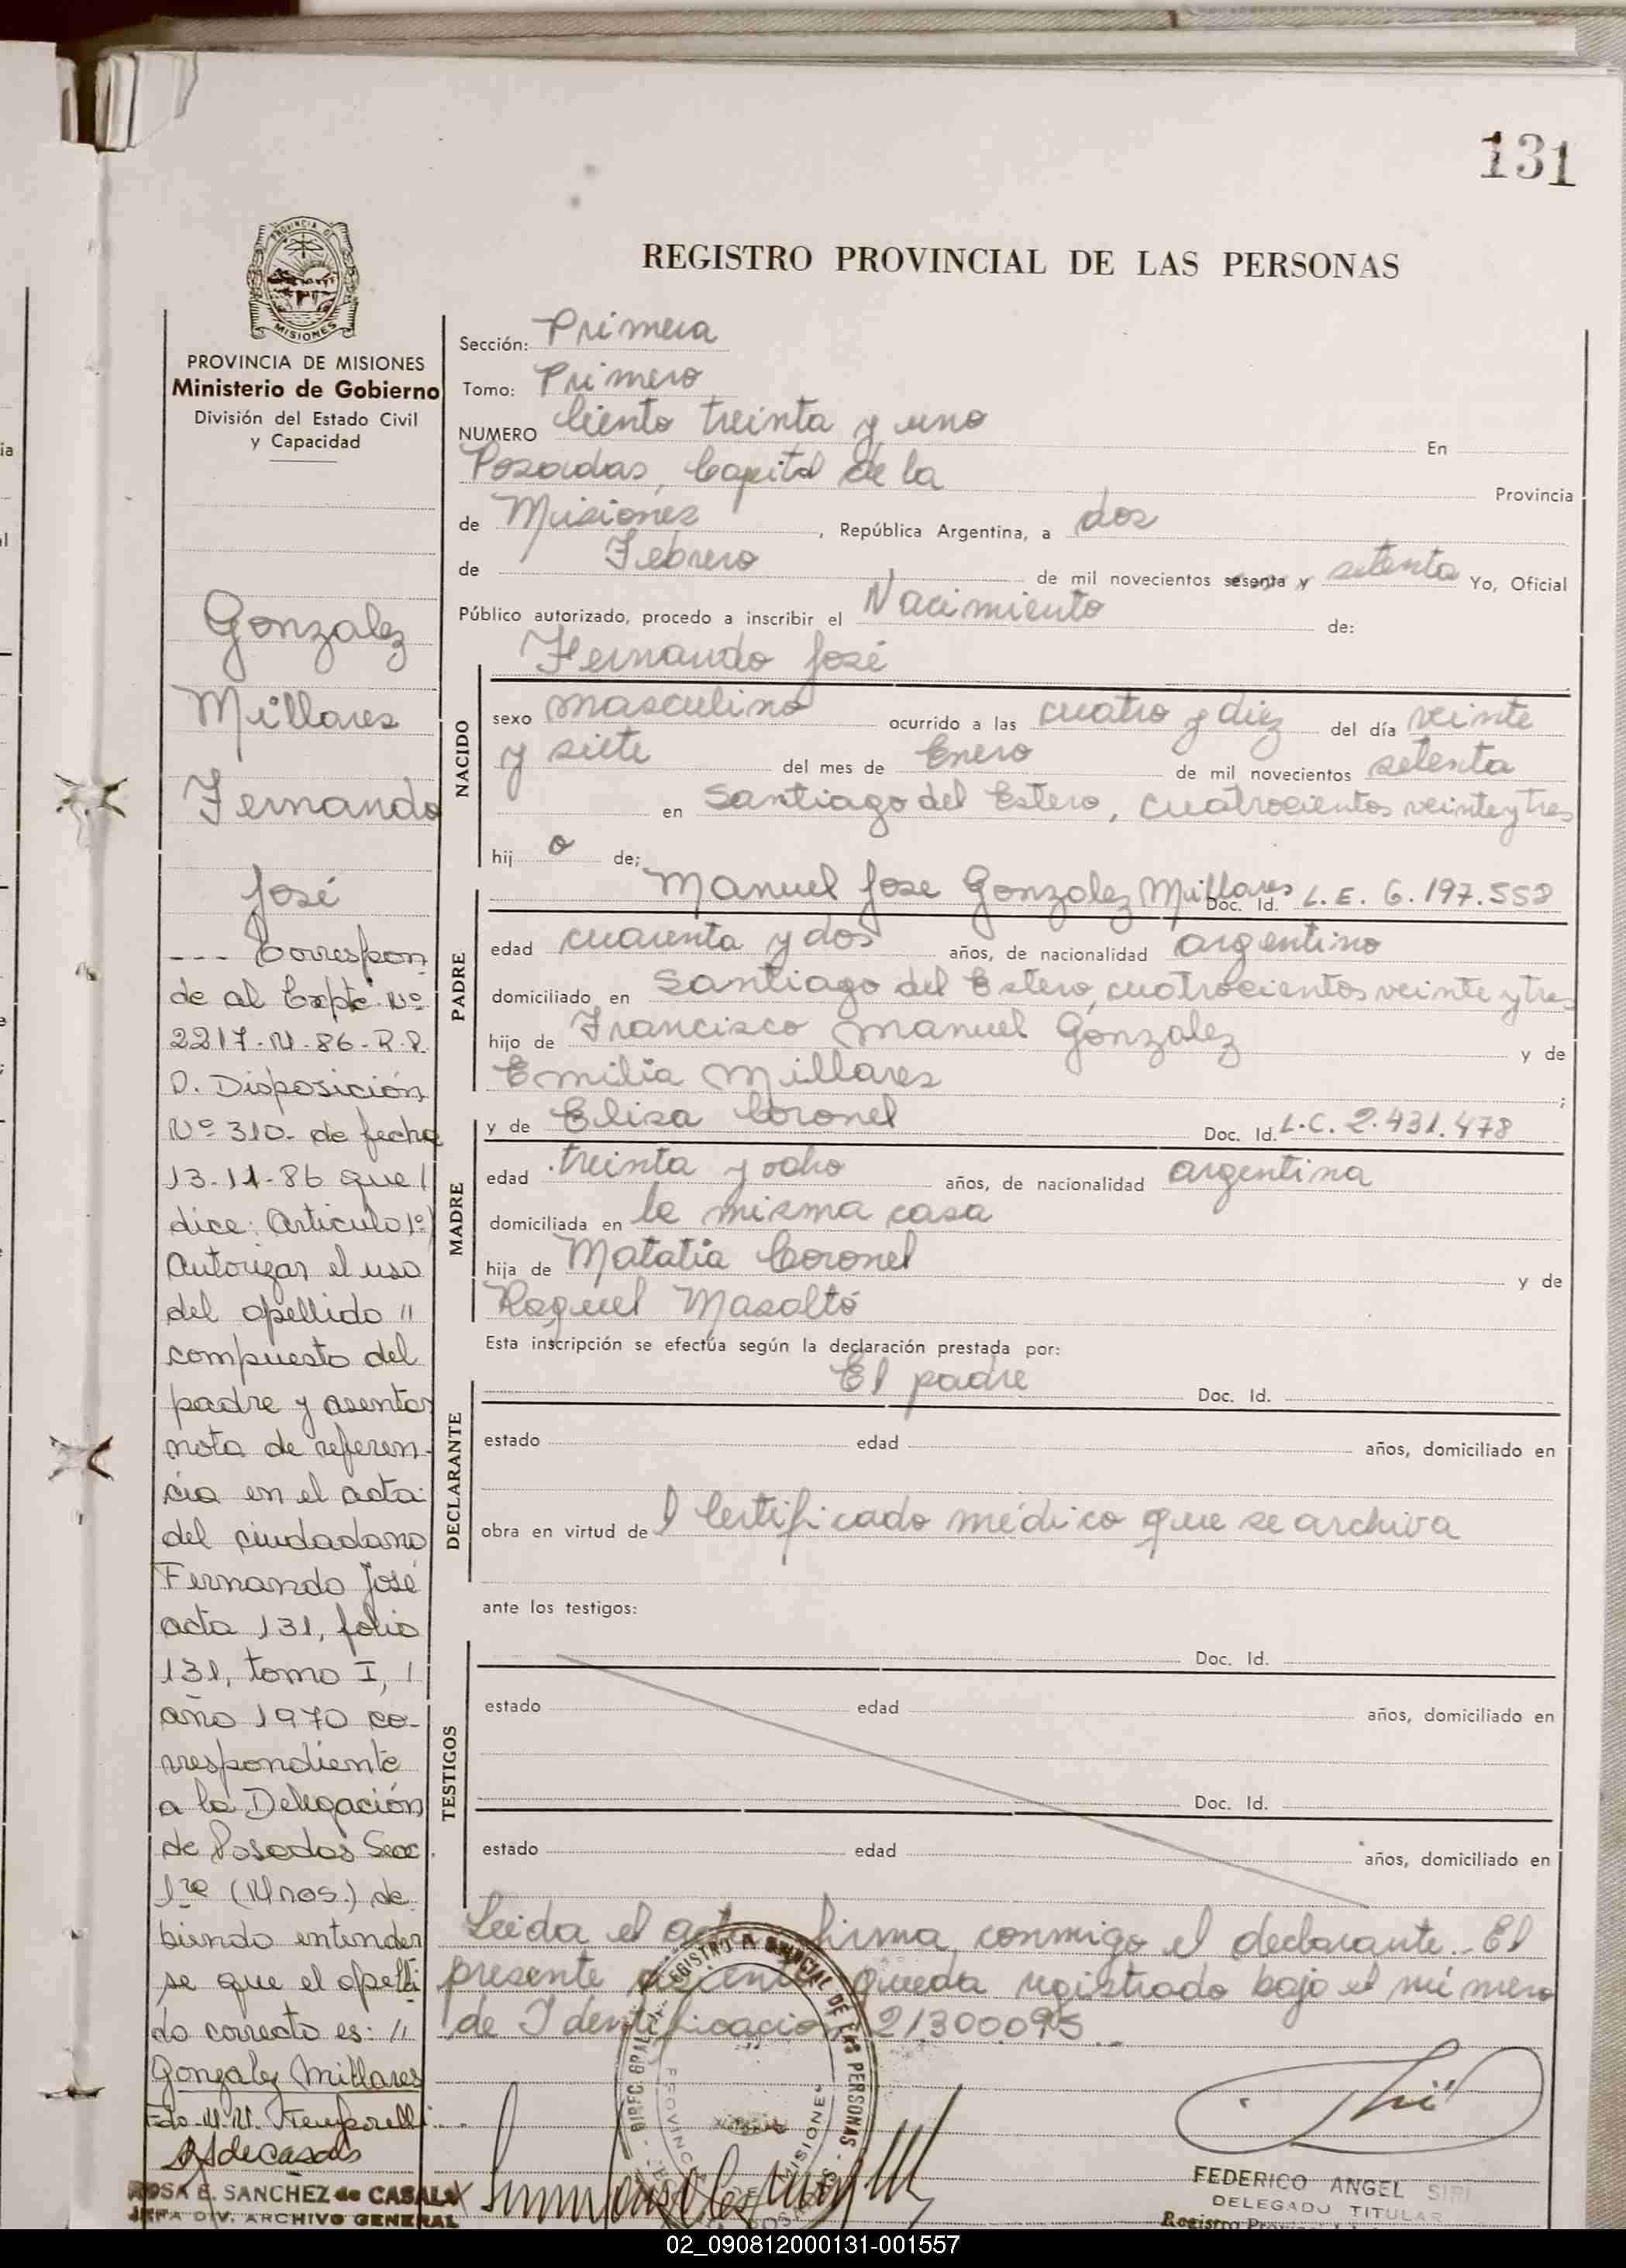 131
REGISTRO PROVINCIAL DE LAS PERSONAS
PROVINCIA DE MISIONES
Ministerio de Gobierno
División del Estado Civil
y Capacidad
Gonzalez
Millares
Fernando
José
--- Correspon
de al Expte. Nº
2217-M-86-R.P.
P. Disposición
Nº 310- de fecha
13-11-86 que /
dice: Articulo 1º)
Autorizar el uso
del apellido //
compuesto del
padre y asentar
nota de referen-
cia en el acta
del ciudadano
Fernando José
acta 131, folio
131, tomo I, /
año 1970 co-
rrespondiente
a la Delegación
de Posadas Secc.
1ra (Mnes.) de-
biendo entender
se que el apelli
do correcto es: //
Gonzalez Millares
Fdo.
ROSA E. SANCHEZ de CASALS
JEFA DIV. ARCHIVO GENERAL
Sección: Primera
Tomo: Primero
NUMERO Ciento treinta y uno En
Posadas, Capital de la Provincia
de Misiones, República Argentina, a dos
de Febrero de mil novecientos sesenta y setenta Yo, Oficial
Público autorizado, procedo a inscribir el Nacimiento de:
Fernando José
NACIDO
sexo masculino ocurrido a las cuatro y diez del día veinte
y siete del mes de Enero de mil novecientos setenta
en Santiago del Estero, cuatrocientos veinte y tres
hij o de;
Manuel Jose Gonzalez Millares Doc. Id. L.E. 6.197.558
PADRE
edad cuarenta y dos años, de nacionalidad argentino
domiciliado en Santiago del Estero, cuatrocientos veinte y tres
hijo de Francisco Manuel Gonzalez y de
Emilia Millares ;
y de Elisa Coronel Doc. Id. L.C. 2.431.478
MADRE
edad treinta y ocho años, de nacionalidad argentina
domiciliada en la misma casa
hija de Matatia Coronel y de
Raquel Masaltó
Esta inscripción se efectúa según la declaración prestada por:
El padre Doc. Id.
DECLARANTE
estado edad años, domiciliado en
obra en virtud de l Certificado médico que se archiva
ante los testigos:
Doc. Id.
TESTIGOS
estado edad años, domiciliado en
Doc. Id.
estado edad años, domiciliado en
Leida el acta firma conmigo el declarante.- El
presente asiento queda registrado bajo el número
de Identificación 21300095
FEDERICO ANGEL SIRI
DELEGADO TITULAR
02_090812000131-001557